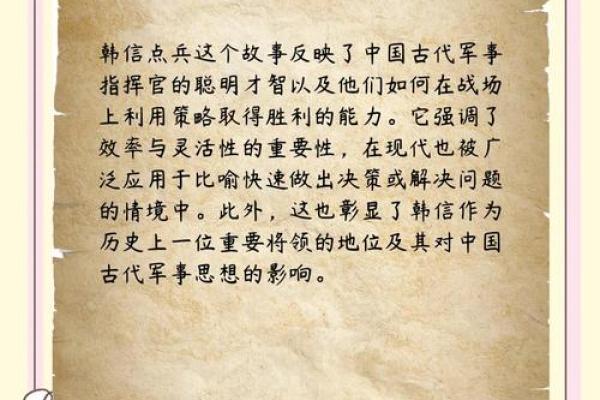 韩信点兵这个故事反映了中国古代军事
指挥官的聪明才智以及他们如何在战场
上利用策略取得胜利的能力。它强调了
效率与灵活性的重要性，在现代也被广
泛应用于比喻快速做出决策或解决问题
的情境中。此外，这也彰显了韩信作为
历史上一位重要将领的地位及其对中国
古代军事思想的影响。